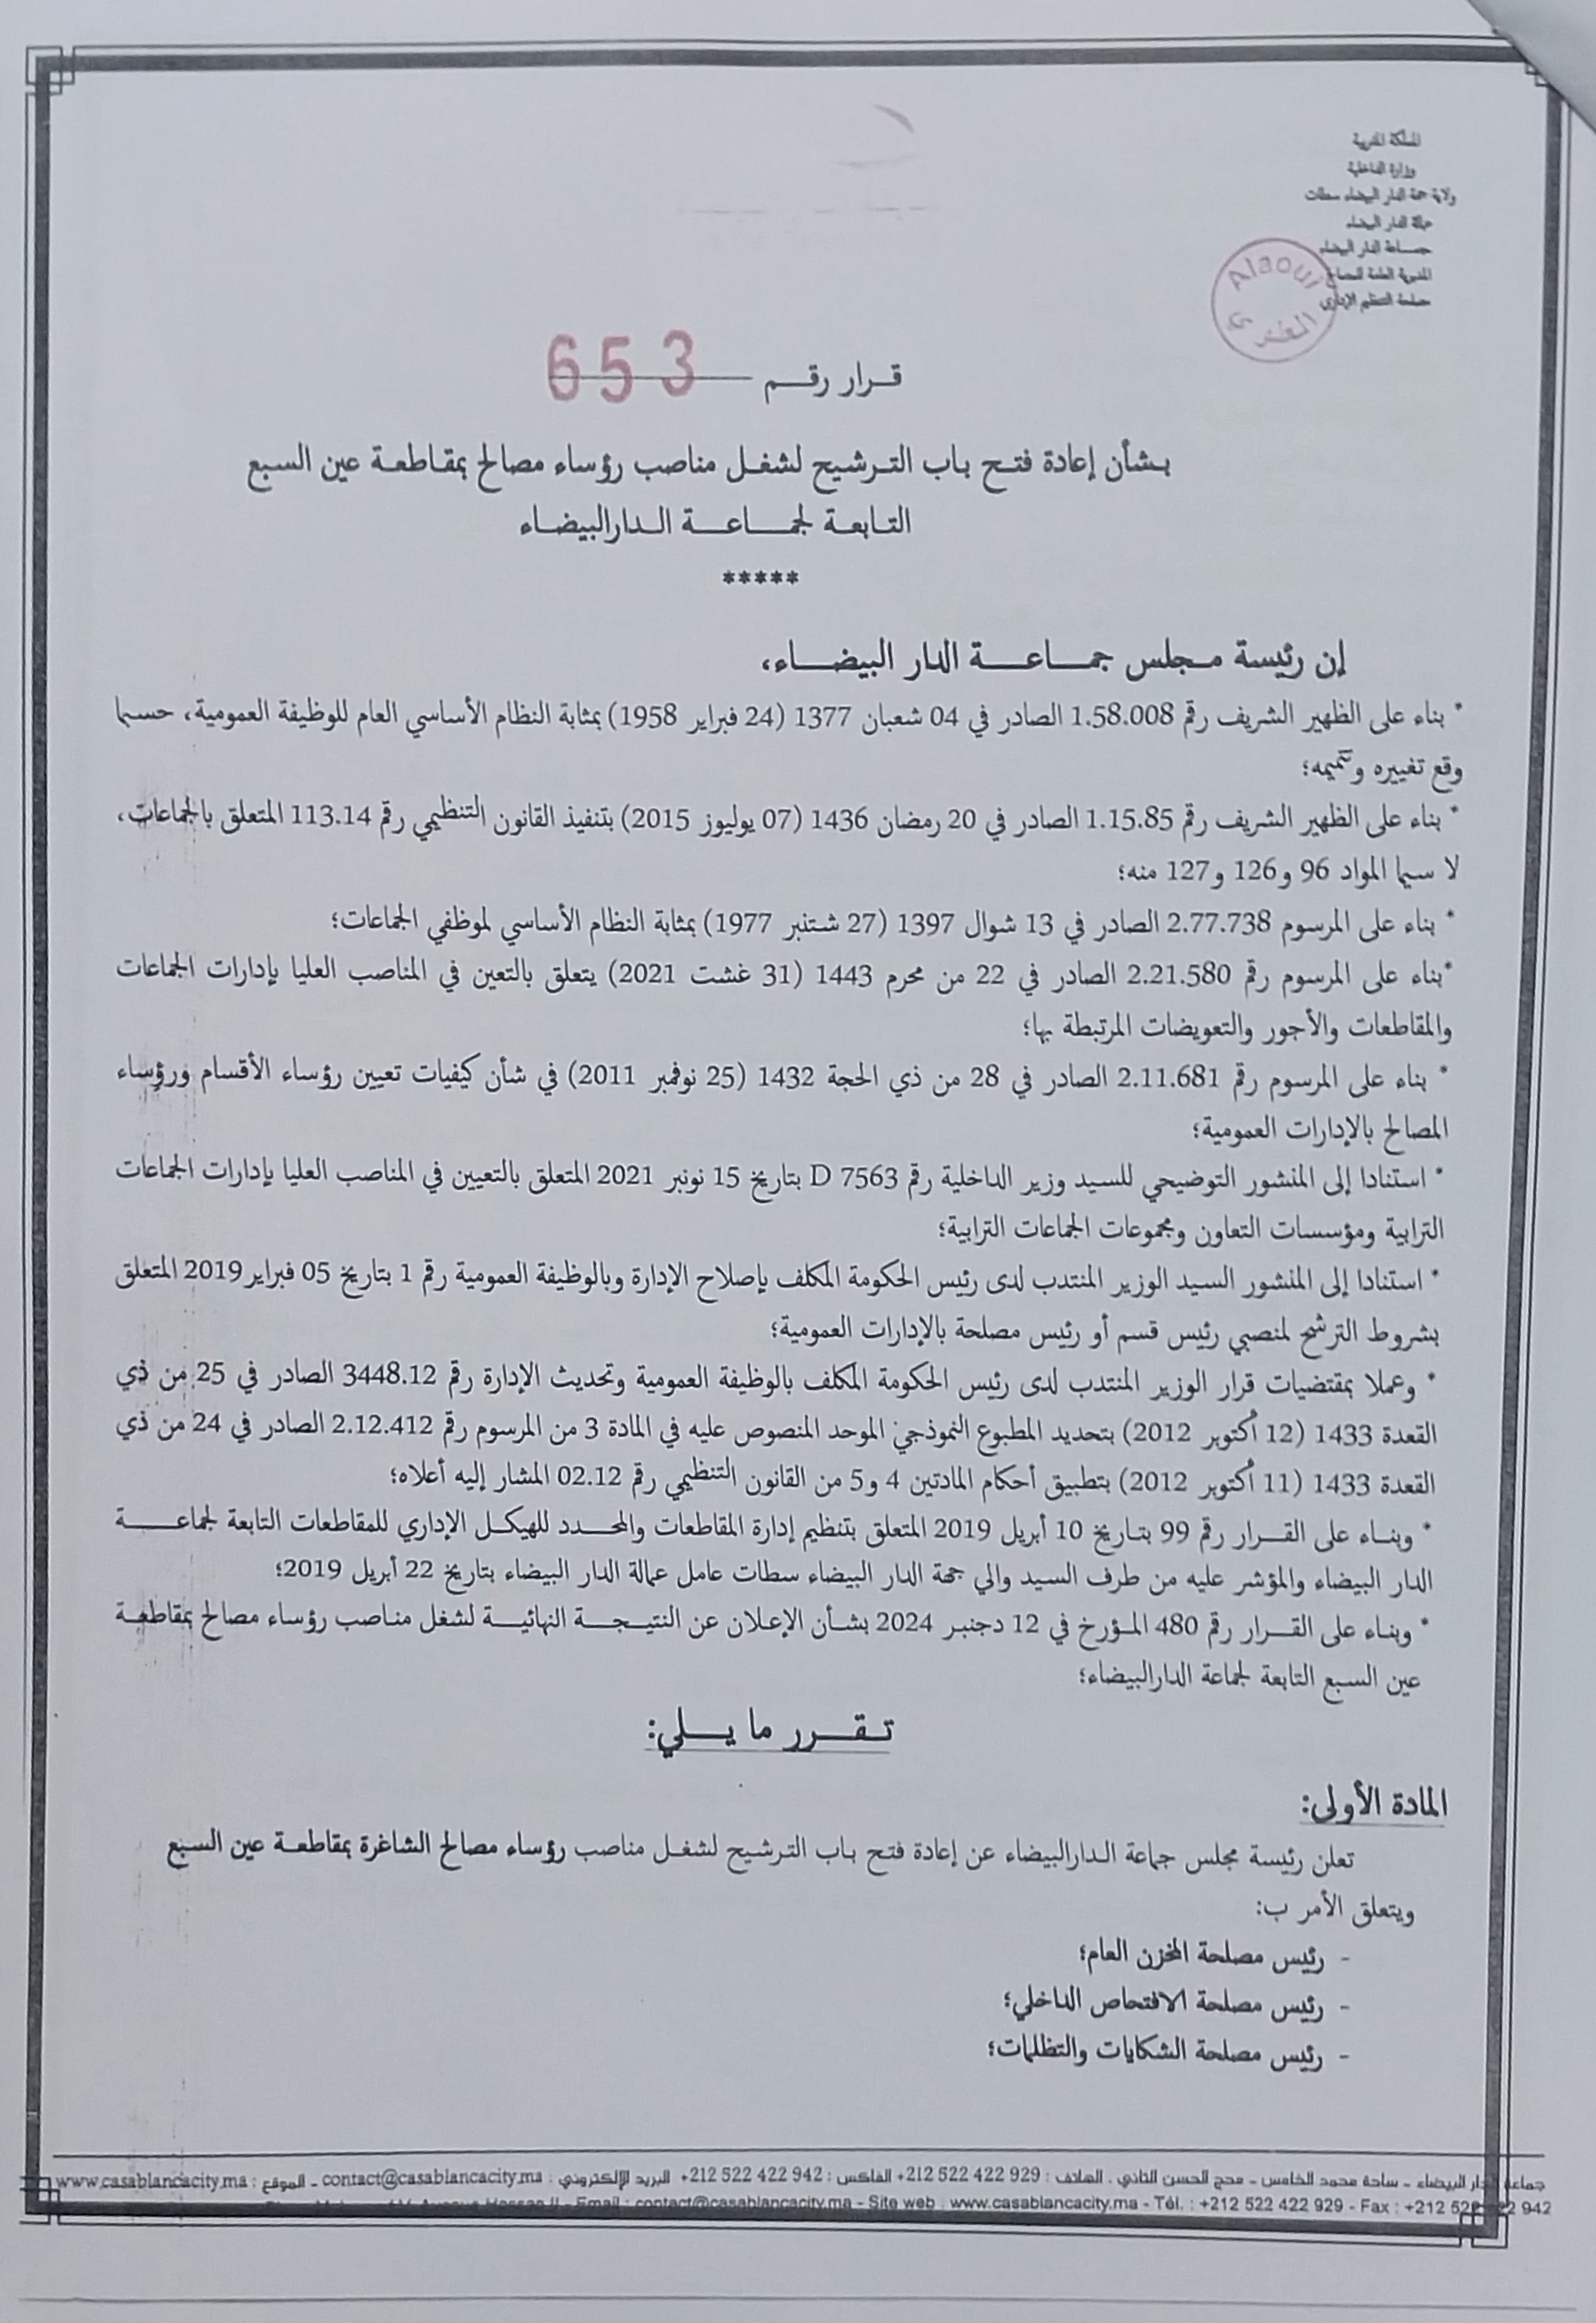 المملكة المغربية
وزارة الداخلية
ولاية جهة الدار البيضاء سطات
عمالة الدار البيضاء
جماعة الدار البيضاء
المديرية العامة للمصالح
مصلحة التنظيم الإداري
Alaoui
قرار رقم 653
بشأن إعادة فتح باب الترشيح لشغل مناصب رؤساء مصالح بمقاطعة عين السبع
التابعة لجماعة الدارالبيضاء
*****
إن رئيسة مجلس جماعة الدار البيضاء،
* بناء على الظهير الشريف رقم 1.58.008 الصادر في 04 شعبان 1377 (24 فبراير 1958) بمثابة النظام الأساسي العام للوظيفة العمومية، حسبما
وقع تغييره وتتميمه؛
* بناء على الظهير الشريف رقم 1.15.85 الصادر في 20 رمضان 1436 (07 يوليوز 2015) بتنفيذ القانون التنظيمي رقم 113.14 المتعلق بالجماعات،
لا سيما المواد 96 و126 و127 منه؛
* بناء على المرسوم 2.77.738 الصادر في 13 شوال 1397 (27 شتنبر 1977) بمثابة النظام الأساسي لموظفي الجماعات؛
*بناء على المرسوم رقم 2.21.580 الصادر في 22 من محرم 1443 (31 غشت 2021) يتعلق بالتعين في المناصب العليا بإدارات الجماعات
والمقاطعات والأجور والتعويضات المرتبطة بها؛
* بناء على المرسوم رقم 2.11.681 الصادر في 28 من ذي الحجة 1432 (25 نوفمبر 2011) في شأن كيفيات تعيين رؤساء الأقسام ورؤساء
المصالح بالإدارات العمومية؛
* استنادا إلى المنشور التوضيحي للسيد وزير الداخلية رقم D 7563 بتاريخ 15 نونبر 2021 المتعلق بالتعيين في المناصب العليا بإدارات الجماعات
الترابية ومؤسسات التعاون ومجموعات الجماعات الترابية؛
* استنادا إلى المنشور السيد الوزير المنتدب لدى رئيس الحكومة المكلف بإصلاح الإدارة وبالوظيفة العمومية رقم 1 بتاريخ 05 فبراير2019 المتعلق
بشروط الترشح لمنصبي رئيس قسم أو رئيس مصلحة بالإدارات العمومية؛
* وعملا بمقتضيات قرار الوزير المنتدب لدى رئيس الحكومة المكلف بالوظيفة العمومية وتحديث الإدارة رقم 3448.12 الصادر في 25 من ذي
القعدة 1433 (12 أكتوبر 2012) بتحديد المطبوع النموذجي الموحد المنصوص عليه في المادة 3 من المرسوم رقم 2.12.412 الصادر في 24 من ذي
القعدة 1433 (11 أكتوبر 2012) بتطبيق أحكام المادتين 4 و5 من القانون التنظيمي رقم 02.12 المشار إليه أعلاه؛
* وبناء على القرار رقم 99 بتاريخ 10 أبريل 2019 المتعلق بتنظيم إدارة المقاطعات والمحدد للهيكل الإداري للمقاطعات التابعة لجماعة
الدار البيضاء والمؤشر عليه من طرف السيد والي جهة الدار البيضاء سطات عامل عمالة الدار البيضاء بتاريخ 22 أبريل 2019؛
* وبناء على القرار رقم 480 المؤرخ في 12 دجنبر 2024 بشأن الإعلان عن النتيجة النهائية لشغل مناصب رؤساء مصالح بمقاطعة
عين السبع التابعة لجماعة الدارالبيضاء؛
تقرر ما يلي:
المادة الأولى:
تعلن رئيسة مجلس جماعة الدارالبيضاء عن إعادة فتح باب الترشيح لشغل مناصب رؤساء مصالح الشاغرة بمقاطعة عين السبع
ويتعلق الأمر ب:
- رئيس مصلحة المخزن العام؛
- رئيس مصلحة الافتحاص الداخلي؛
- رئيس مصلحة الشكايات والتظلمات؛
جماعة الدار البيضاء - ساحة محمد الخامس - محج الحسن الثاني . الهاتف : 929 422 522 212+ الفاكس : 942 422 522 212+ البريد الإلكتروني : contact@casablancacity.ma - الموقع : www.casablancacity.ma
Avenue Hassan II - Email : contact@casablancacity.ma - Site web : www.casablancacity.ma - Tél. : +212 522 422 929 - Fax : +212 522 422 942